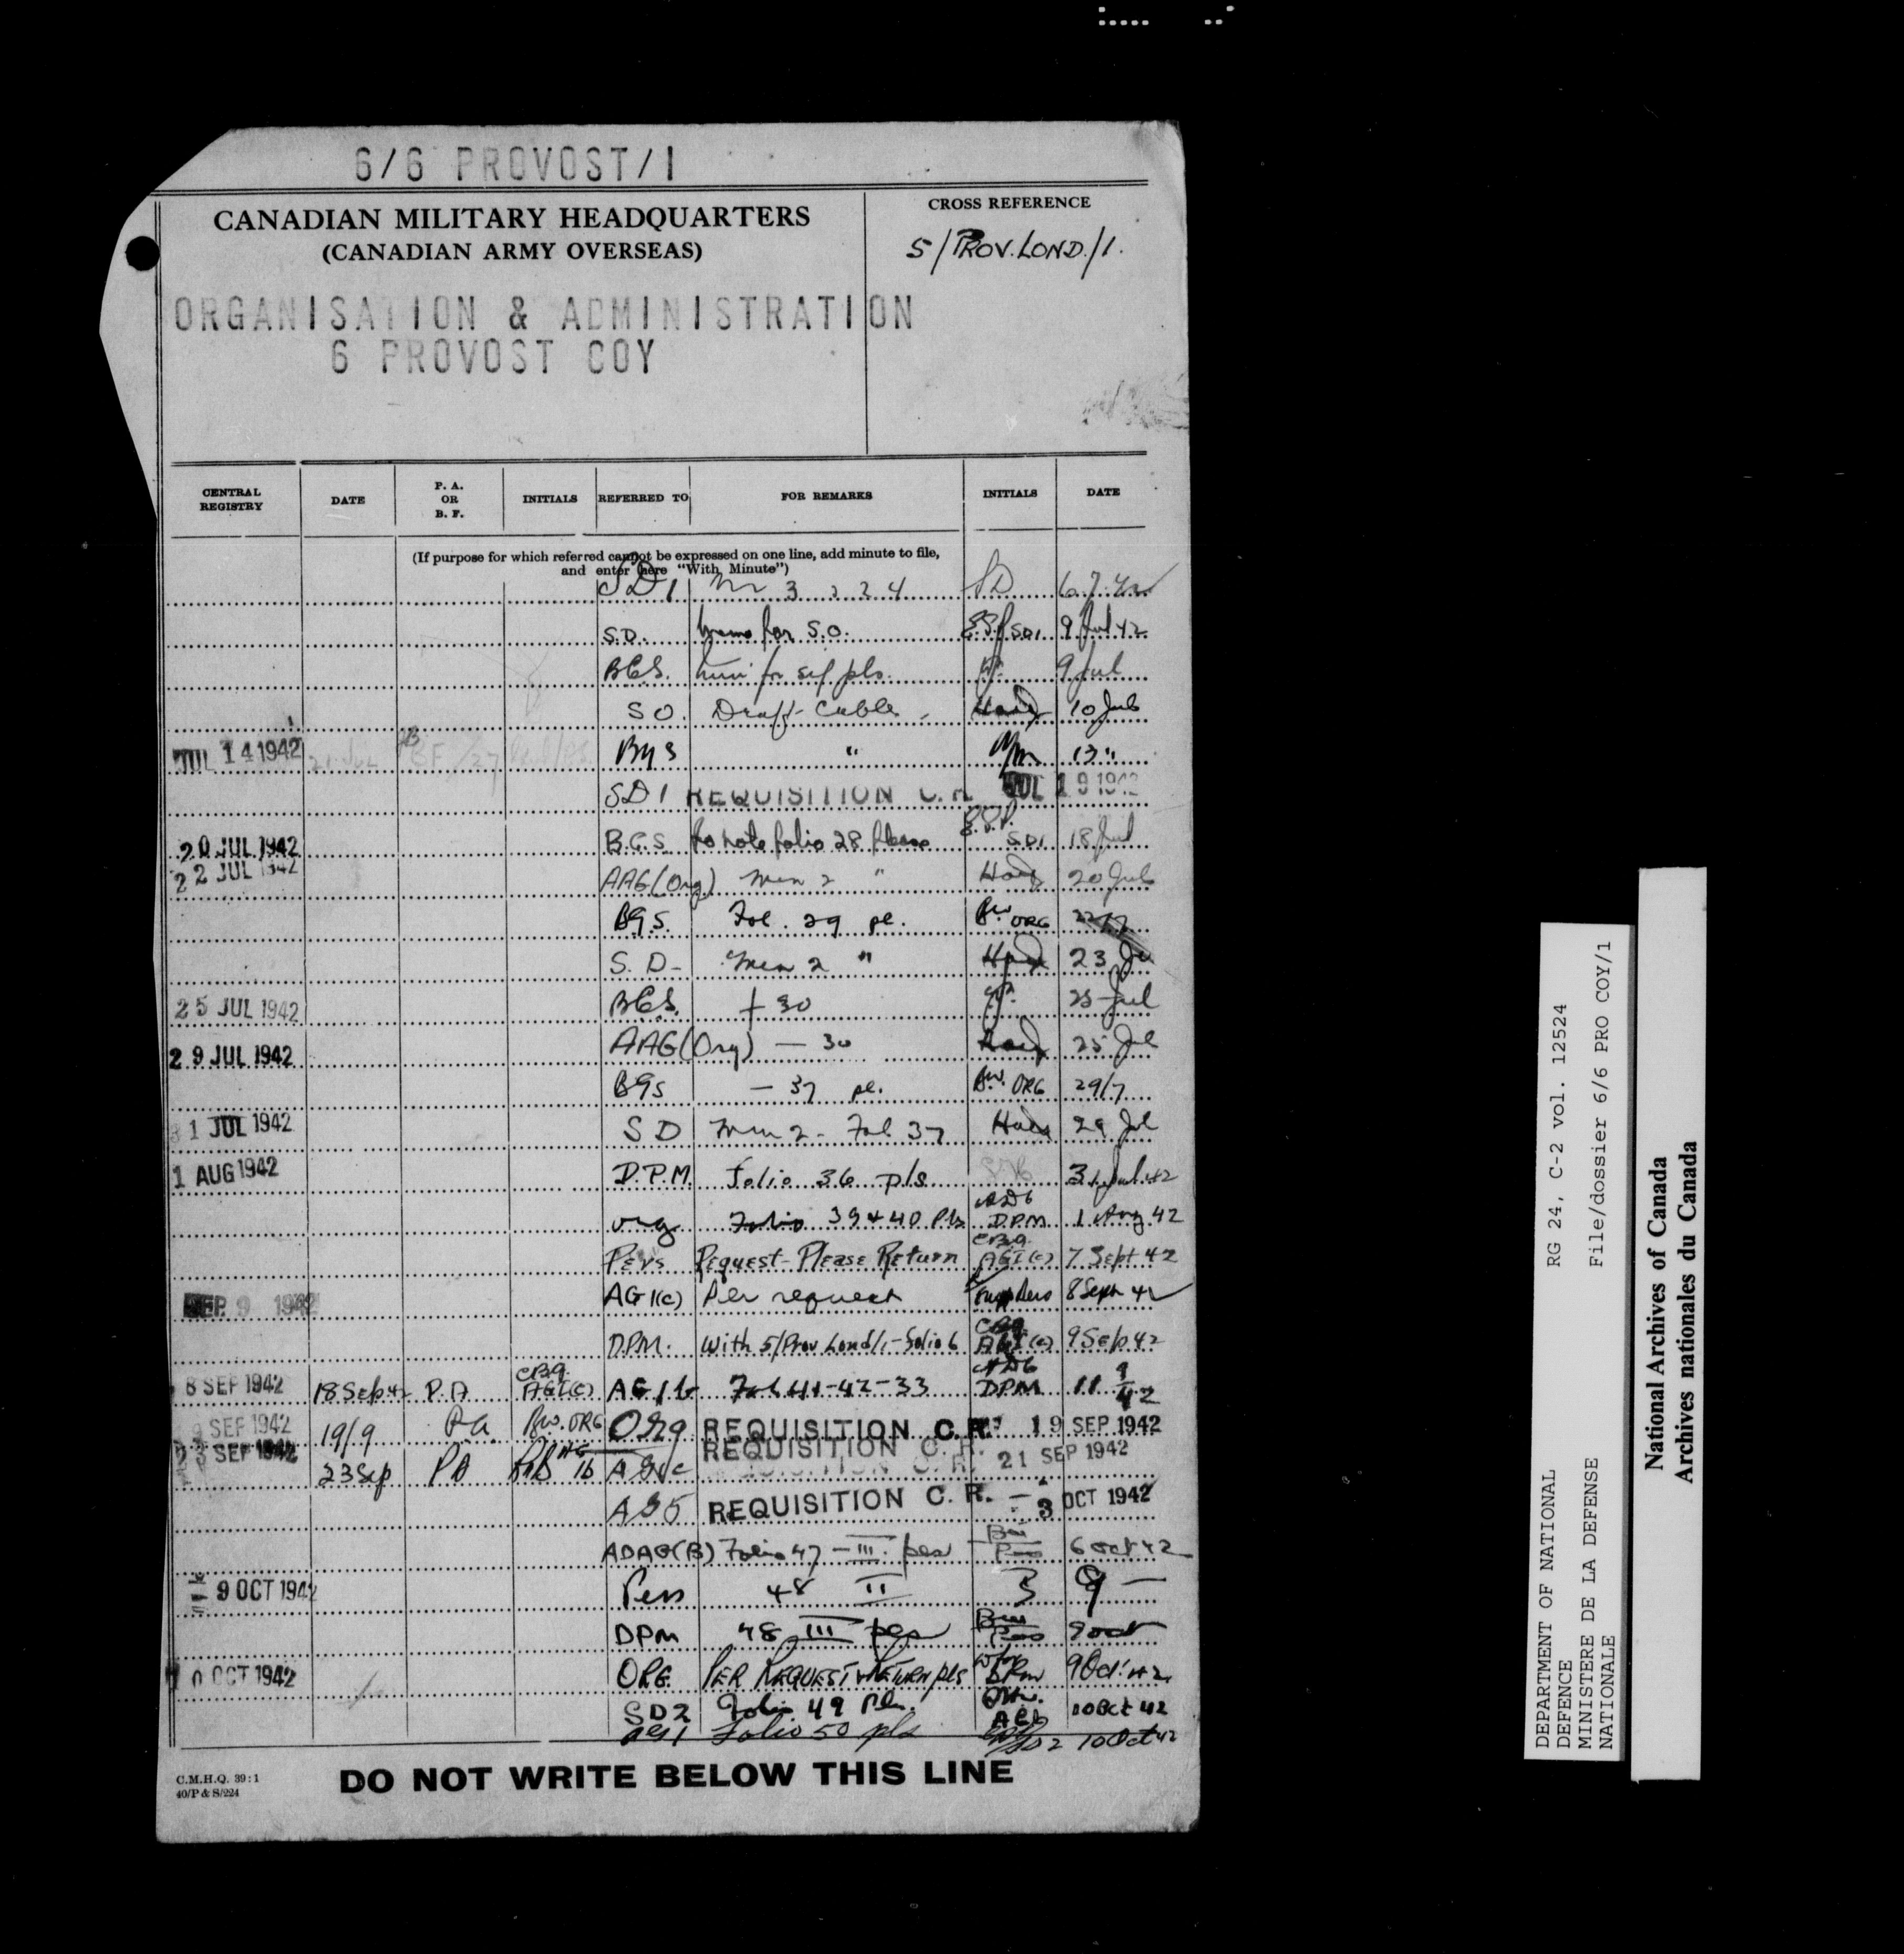 6/6 PROVOST/1
CANADIAN MILITARY HEADQUARTERS
(CANADIAN ARMY OVERSEAS)
CROSS REFERENCE
5/PROV.LOND./1.
ORGANISATION & ADMINISTRATION
6 PROVOST COY
CENTRAL REGISTRY DATE P. A. OR B. F. INITIALS REFERRED TO FOR REMARKS INITIALS DATE
(If purpose for which referred cannot be expressed on one line, add minute to file,
and enter here "With Minute")
SD1 3 2 2 4 SD 6.7.42
S.D. for S.O. SD1 9 Jul 42
BGS. for pls. 9 Jul
SO. Draft Cable 10 Jul
JUL 14 1942 21 Jul BF /27 BGS " 13 "
SD1 REQUISITION C.R. JUL 19 1942
20 JUL 1942 B.G.S. to note folio 28 please E.S.P. SD1 18 Jul
22 JUL 1942 AAG(Org) Min 2 " 20 Jul
BGS. Fol. 29 pl. ORG 22/7
S.D- Min 2 " 23 Jul
25 JUL 1942 BGS. f 30 25 Jul
29 JUL 1942 AAG(Org) — 30 25 Jul
BGS — 37 pl. ORG 29/7
31 JUL 1942 SD Min 2 - Fol 37 29 Jul
1 AUG 1942 D.P.M. Folio 36 pls 31 Jul 42
org Folio 39 & 40 Pls DPM 1 Aug 42
Pers Request-Please Return CBG. AG1(c) 7 Sept 42
SEP 9 1942 AG1(c) Per request Pers 8 Sept 42
D.P.M. With 5/Prov Lond/1-Folio 6 CBG. AG1(c) 9 Sep 42
8 SEP 1942 18 Sep 42 P.A CBG. AG1(c) AG1b Fol 41-42-33 DPM 11 9/42
SEP 1942 19/9 P.A. ORG Org REQUISITION C.R. 19 SEP 1942
23 SEP 1942 23 Sep PA 1b REQUISITION C.R. 21 SEP 1942
AG5 REQUISITION C.R. - 3 OCT 1942
ADAG(B) Folio 47 - III. pls 6 Oct 42
- 9 OCT 1942 Pers 48 II 9 —
DPM 48 III pls 9 Oct
10 OCT 1942 ORG. PER REQUEST & RETURN pls DPM 9 Oct. 42
SD2 Folio 49 Pls. 10 Oct 42
AG1 Folio 50 pls SD2 10 Oct 42
C.M.H.Q. 39:1
40/P & S/224
DO NOT WRITE BELOW THIS LINE
DEPARTMENT OF NATIONAL
DEFENCE
MINISTERE DE LA DEFENSE
NATIONALE
RG 24, C-2 vol. 12524
File/dossier 6/6 PRO COY/1
National Archives of Canada
Archives nationales du Canada